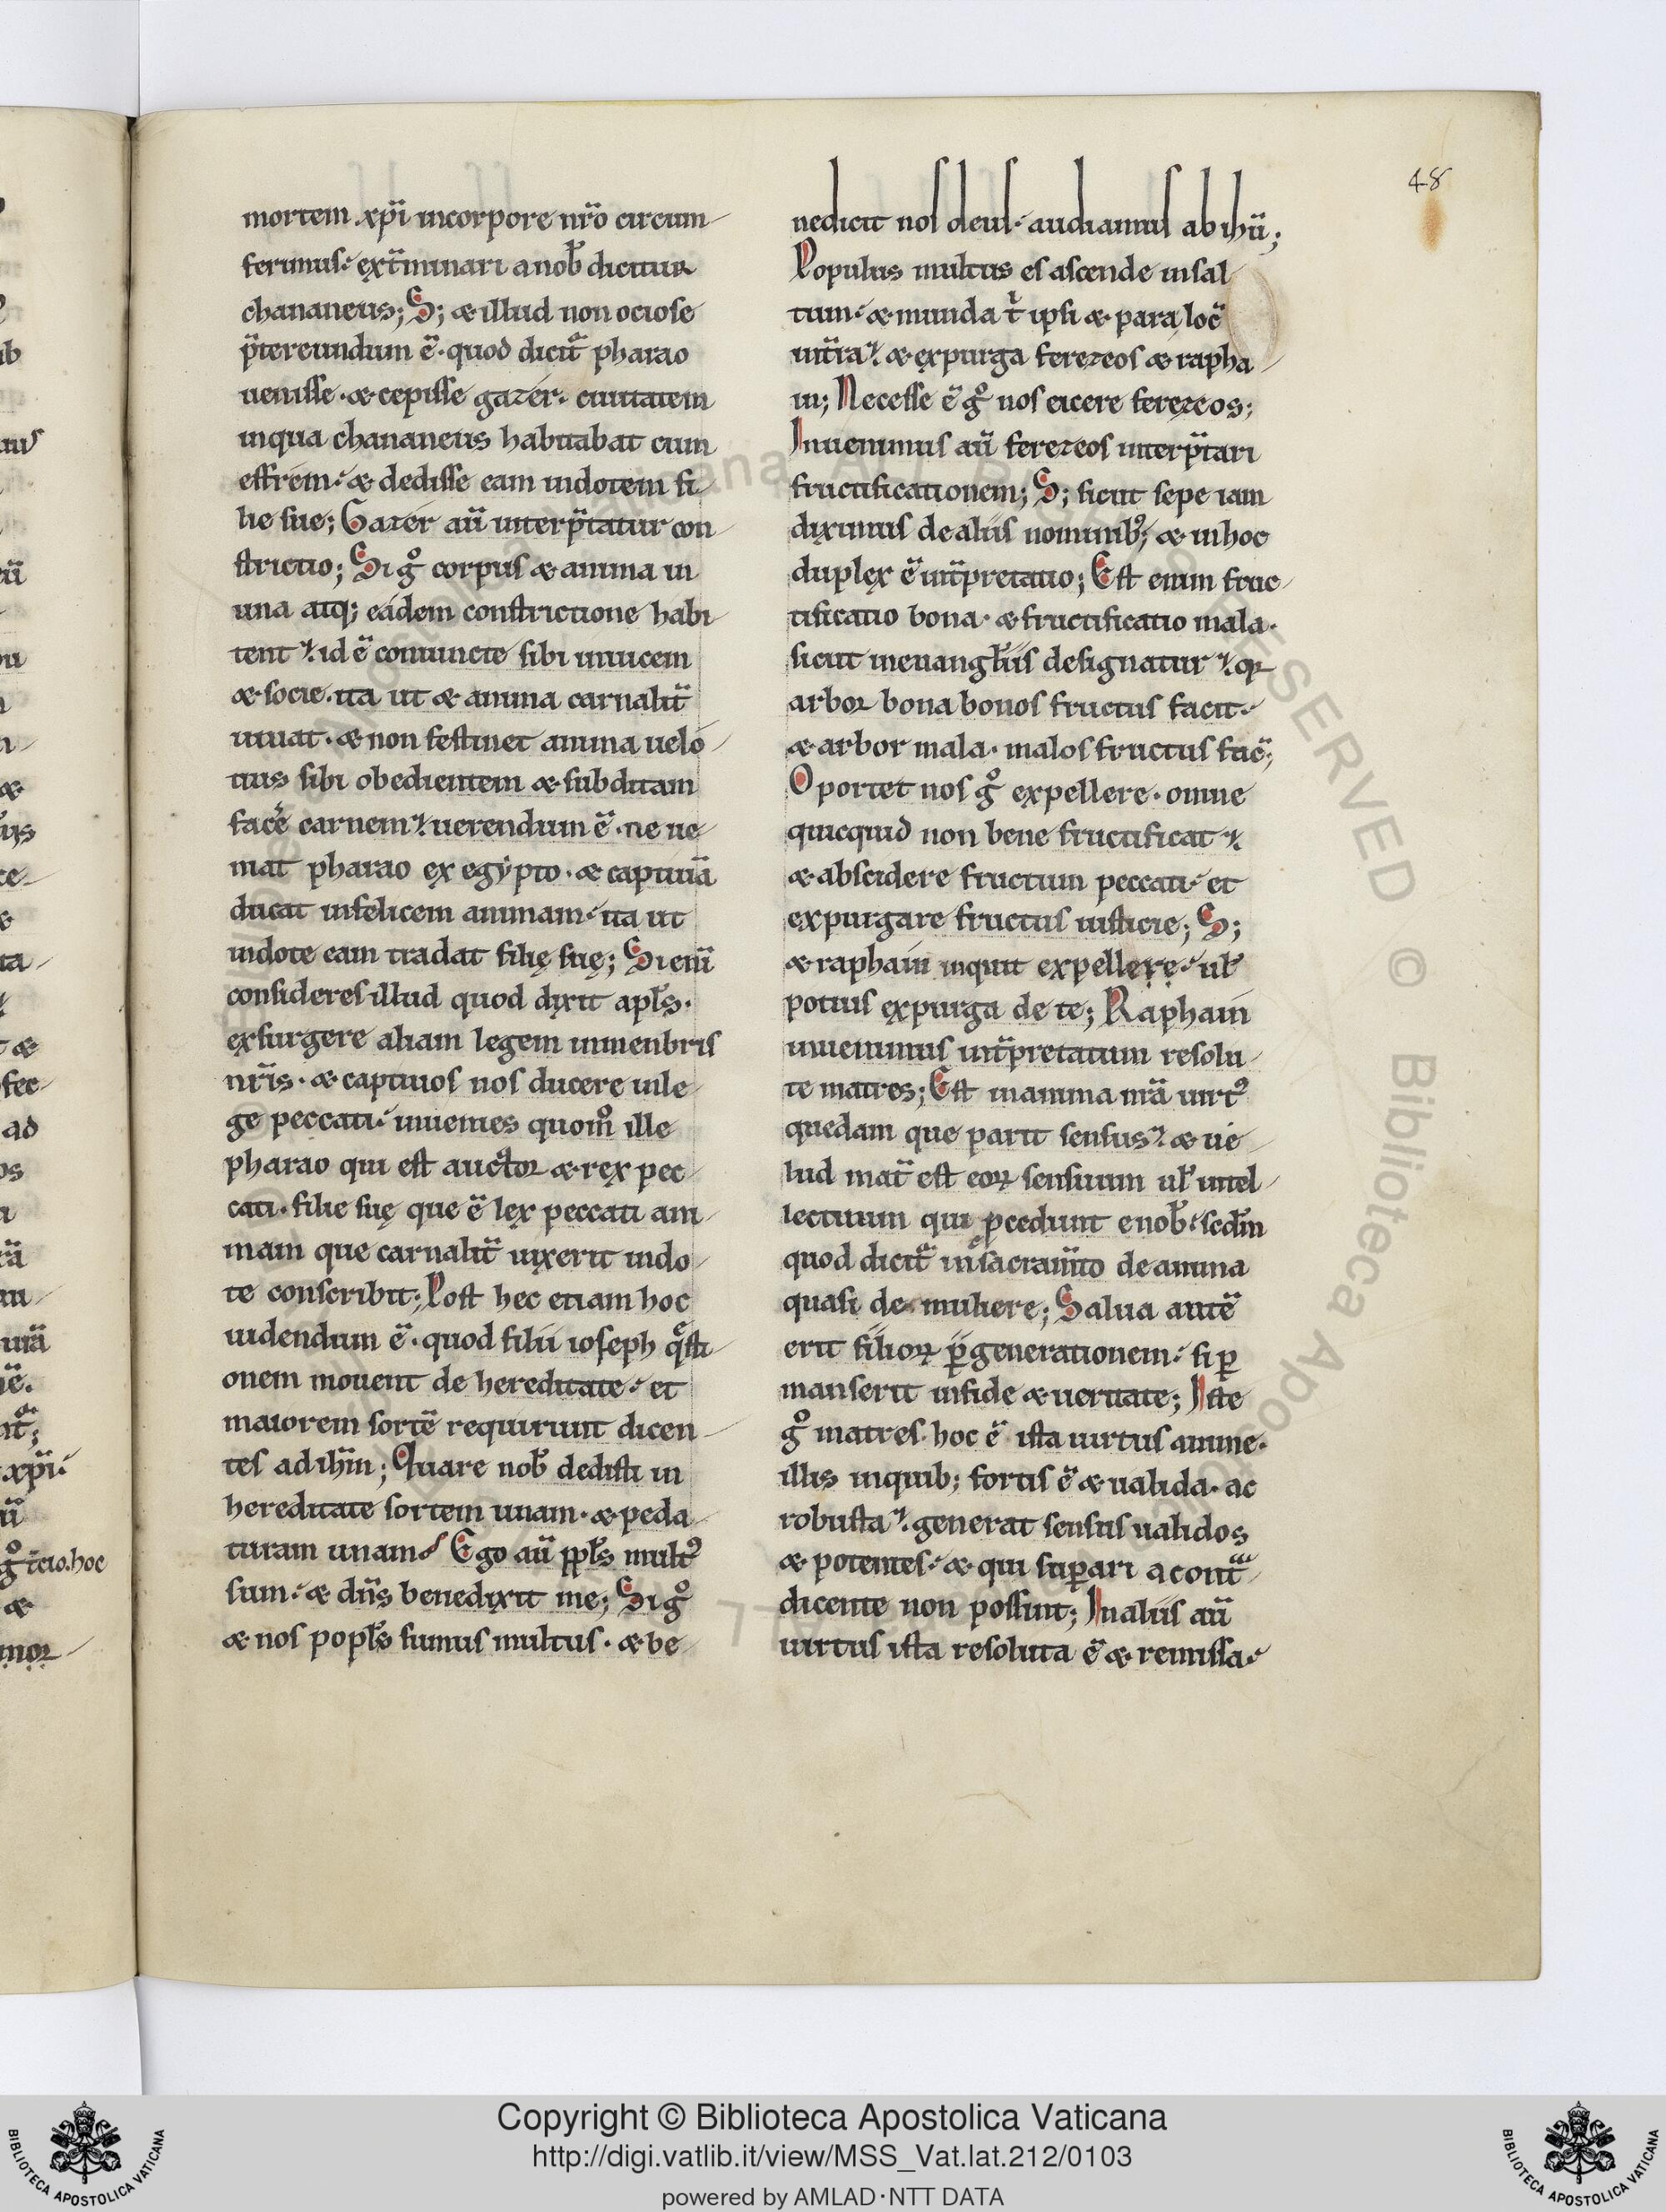 48
mortem xp̄i incorpore nr̄o circum-
ferimus. ext̄minari anob̄ dicitur
chananeus; S; & illud non ociose
p̄tereundum ē. quod dicit̄ pharao
uenisse. & cepisse gazér. ciuitatem
inqua chananeus habitabat cum
effrem. & dedisse eam indotem fi-
lie sue; Gazér aū interp̄tatur con-
strictio; Si gͦ corpus & anima in
una atq; eádem constrictione habi-
tent. id ē coniuncte sibi inuicem
& socie. ita ut & anima carnalit̄
uiuat. & non festinet anima uelo-
tius sibi obedientem & subditam
facē carnem. uerendum ē. ne ue-
niat pharao ex egypto. & captiuā
ducat infelicem animam. ita ut
indote eam tradat filię suę; Si enī
consideres illud quod dixit apl̄s.
exsurgere aliam legem inmenbris
nr̄is. & captiuos nos ducere inle-
ge peccati. inuenies quom̊ ille
pharao qui est auctor & rex pec-
cati. filie suę que ē lex peccati ani-
mam que carnalit̄ uixerit indo-
te conscribit; Post hec etiam hoc
uidendum ē. quod filii ioseph q̄sti-
onem mouent de hereditate. et
maiorem sortē requirunt dicen-
tes ad ihm̄; Quare nob̄ dedisti in
hereditate sortem unam. & peda-
turam unam. Ego aū ppl̄s mult᾿
sum. & dn̄s benedixit me; Si gͦ
& nos popl̄s sumus multus. & be-
nedicit nos deus. audiamus ab ihū;
Populus multus es ascende insal-
tum. & munda t̄ ipsi & para locē
int̄ra. & expurga ferezeos & rapha-
in; Necesse ē gͦ nos eicere ferezeos;
Inuenimus aū ferezeos interp̄tari
fructificationem; S; sicut sepe iam
diximus dealiis nominib᾿; & inhoc
duplex ē int̄pretatio; Est enim fruc-
tificatio bona. & fructificatio mala.
sicut ineuangl̄iis designatur. qr
arbor bona bonos fructus facit.
& arbor mala. malos fructus fac̄;
Oportet nos gͦ expellere. omne
quicquid non bene fructificat.
& abscidere fructum peccati. et
expurgare fructus iusticie; S;
& raphain inquit expellere. ul̄
potius expurga de te; Raphain
inuenimus int̄pretatum resolu-
te matres; Est inanima nr̄a uirt᾿
quedam que parit sensus. & ue-
lud mat̄ est eoꝝ sensuum ul̄ intel-
lectuum qui p̄cedunt enob̄. scdm̄
quod dicit̄ insacramn̄to deanima
quasi de muliere; Salua autē
erit filioꝝ ꝑ generationem. si ꝑ
manserit infide & ueritate; Iste
gͦ matres. hoc ē ista uirtus anime.
illis inquib; fortis ē & ualida. ac
robusta. generat sensus ualidos
& potentes. & qui suꝑari acont̄-
dicente non possint; Inaliis aū
uirtus ista resoluta ē & remissa.
Copyright © Biblioteca Apostolica Vaticana
http://digi.vatlib.it/view/MSS_Vat.lat.212/0103
powered by AMLAD·NTT DATA
BIBLIOTECA APOSTOLICA VATICANA
BIBLIOTECA APOSTOLICA VATICANA